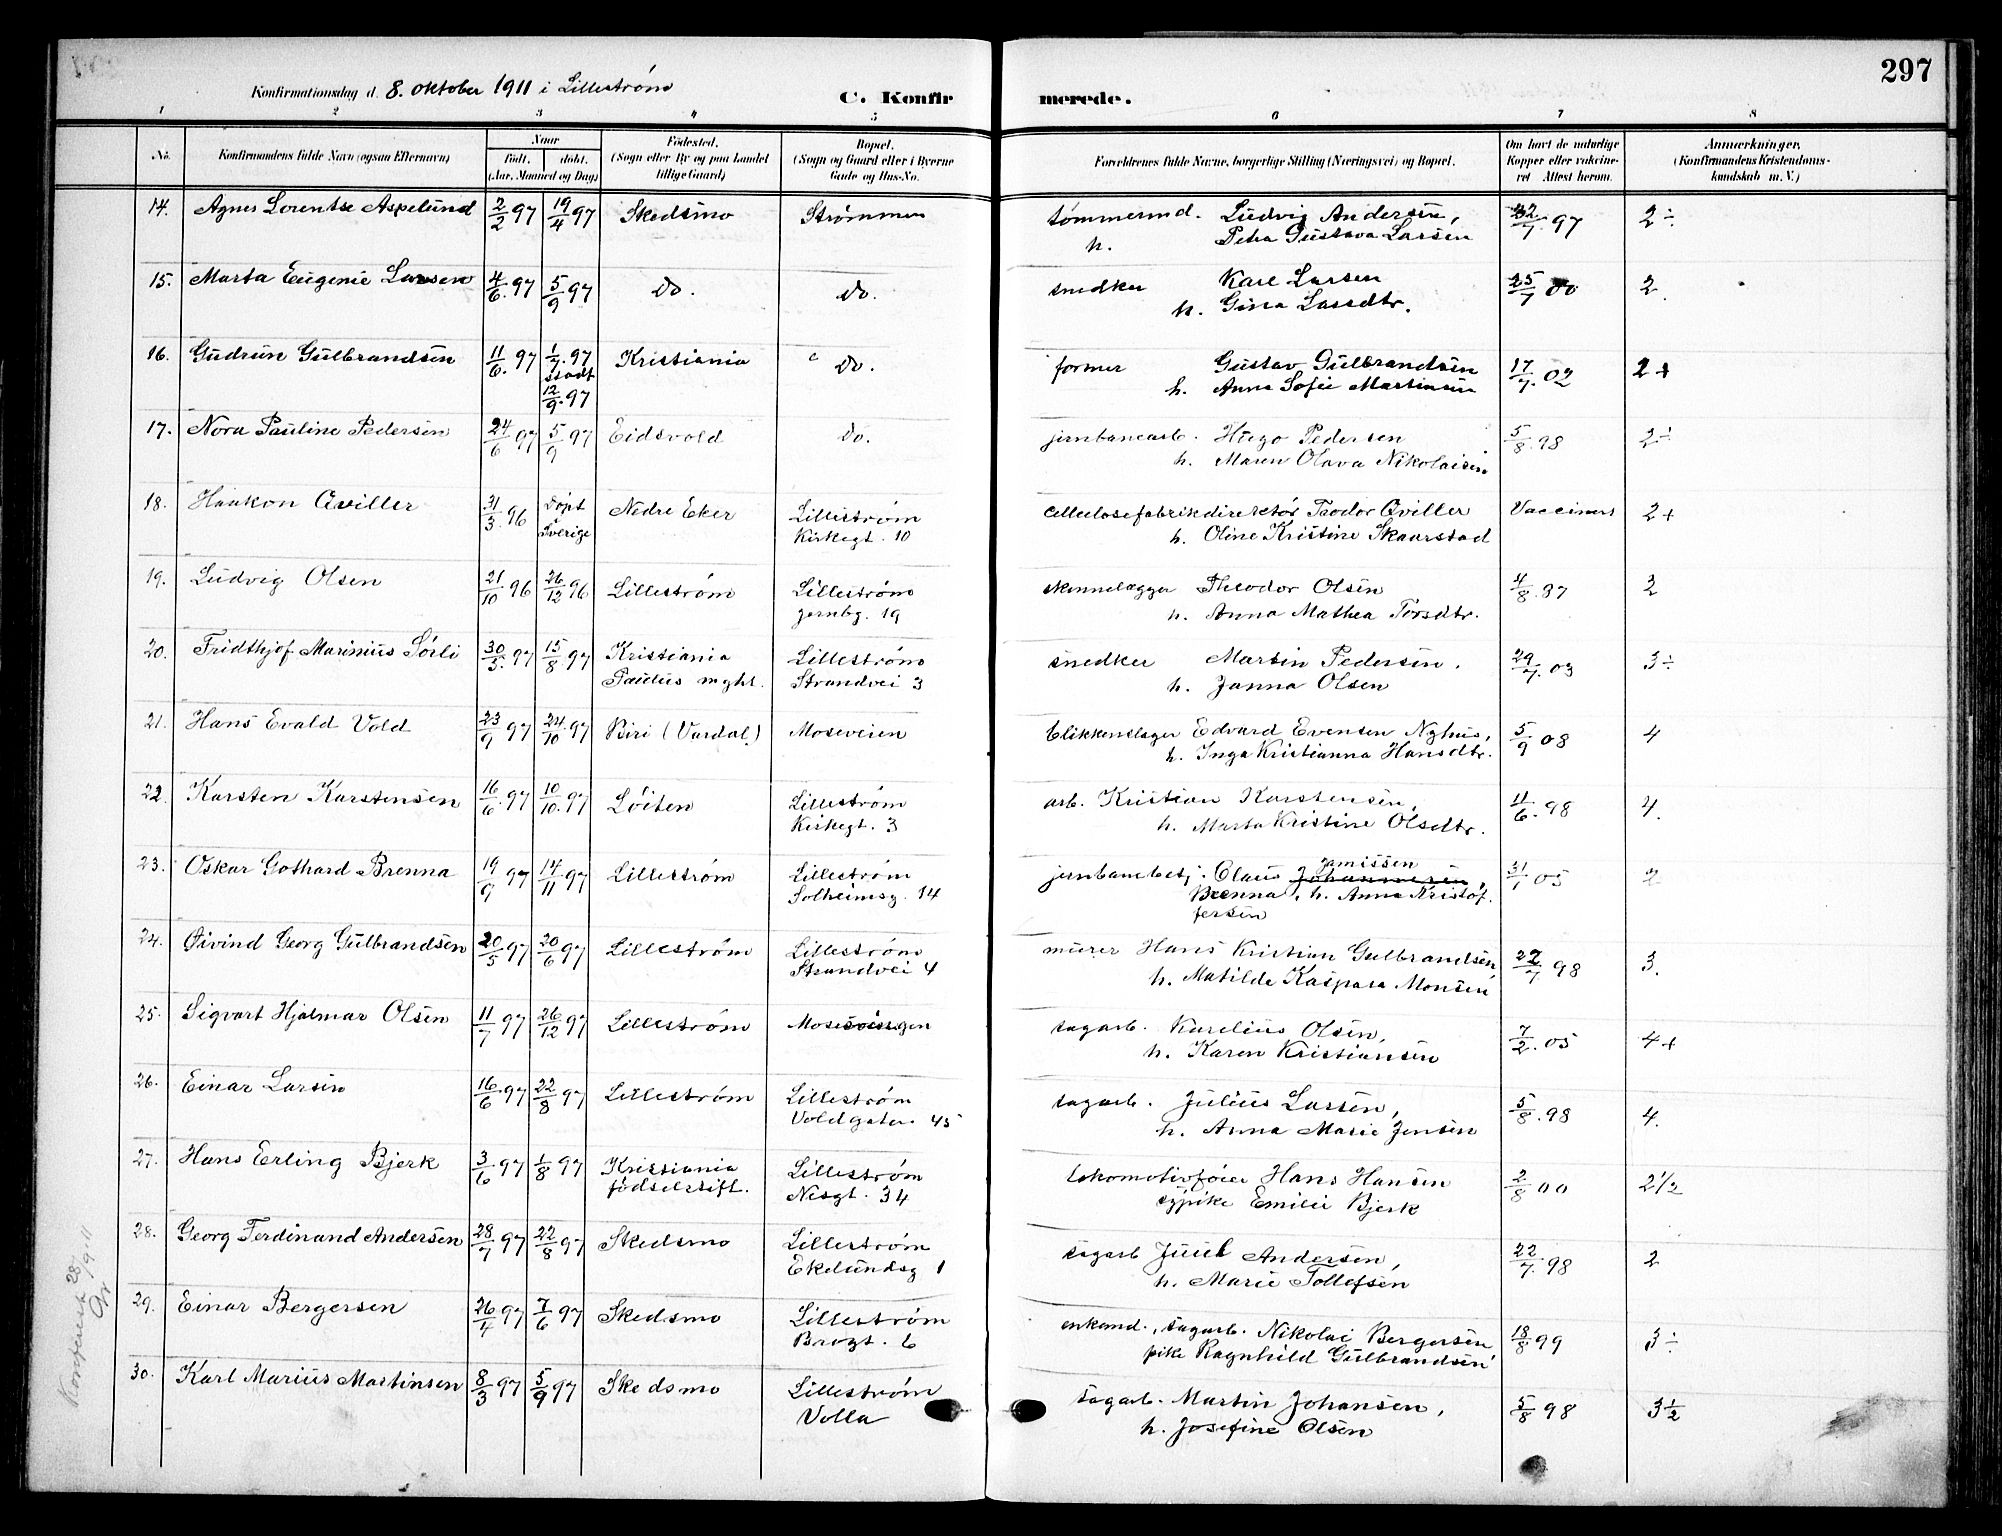 297
Konfirmationsdag d. 8. oktober 1911 i Lillestrøm
C. Konfirmerede.
1 2 3 4 5 6 7 8
No. Konfirmandens fulde Navn (ogsaa Efternavn) Naar født. døbt. (Aar, Maaned og Dag) Fødested. (Sogn eller By og paa Landet tillige Gaard) Bopæl. (Sogn og Gaard eller i Byerne Gade og Hus-No. Forældrenes fulde Navne, borgerlige Stilling (Næringsvei) og Bopæl. Om havt de naturlige Kopper eller vaccineret Attest herom. Anmærkninger. (Konfirmandens Kristendomskundskab m. V.)
14. Agnes Lorentse Aspelund 2/2 97 19/4 97 Skedsmo Strømmen tømmermd. Ludvig Andersen, 22/7. 97 2 ÷
h. Petra Gustava Larsen
15. Marta Eugenie Larsen 4/6. 97 5/9 97 do. do. snedker Karl Larsen 25/7 00 2
h. Gina Larsdtr.
16. Gudrun Gulbrandsen 11/6. 97 1/7. 97 Kristiania do. former Gustav Gulbrandsen 17/7. 02 2+
stadf. 12/9. 97 h. Anna Sofie Martinsen
17. Nora Pauline Pedersen 24/6 97 5/9 97 Eidsvold do. jernbanearb. Hugo Pedersen 5/8. 98 2 ÷
h. Maren Olava Nikolaisen
18. Haakon Qviller 31/3. 96 Døpt Nedre Eker Lillestrøm cellulosefabrikdirektør Teodor Qviller Vaccinert 2+
Sverige Kirkegt. 10 h. Oline Kristine Skaarstad
19. Ludvig Olsen 21/10 96 26/12 96 Lillestrøm Lillestrøm skinnelægger Theodor Olsen 4/8. 97 2
Jernbg. 19 h. Anna Mathea Torsdtr.
20. Fridthjof Marinius Sørli 30/5. 97 15/8. 97 Kristiania Lillestrøm snedker Martin Pedersen. 29/7. 03 3 ÷
Paulus mght. Strandvei 3 h. Janna Olsen
21. Hans Evald Vold 23/9 97 24/10 97 Biri (Vardal) Moseveien blikkenslager Edvard Evensen Nyhus, 5/9 08 4
h. Inga Kristianna Hansdtr.
22. Karsten Karstensen 16/6. 97 10/10. 97 Løiten Lillestrøm arb. Kristian Karstensen, 11/6. 98 4.
Kirkegt. 3 h. Marta Kristine Olsdtr.
23. Oskar Gothard Brenna 19/9 97 14/11 97 Lillestrøm Lillestrøm jernbanebetj. Claus Johannesen, 31/1 05 2
Jamissen
Solheimsg. 14 Brenna, h. Anna Kristof-
fersen
24. Øivind Georg Gulbrandsen 20/5 97 20/6 97 Lillestrøm Lillestrøm murer Hans Kristian Gulbrandsen, 22/7 98 3.
Strandvei 4 h. Matilde Kaspara Monsen
25. Sigvart Hjalmar Olsen 11/7 97 26/12 97 Lillestrøm sagarb. Karelius Olsen, 7/2. 05 4+
h. Karen Kristiansen
26. Einar Larsen 16/6 97 22/8 97 Lillestrøm Lillestrøm sagarb. Julius Larsen, 5/8. 98 4.
Voldgaten 45 h. Anna Marie Jensen
27. Hans Erling Bjerk 3/6 97 1/8 97 Kristiania Lillestrøm lokomotivfører Hans Hansen 2/8 00 2 1/2
fødselsstift. Nesgt. 34 sypike Emilie Bjerk
28. Georg Ferdinand Andersen 28/7 97 22/8 97 Skedsmo Lillestrøm sagarb Juul Andersen, 22/7. 98 2
Ekelundsg 1 h. Marie Tollefsen
29. Einar Bergersen 26/4 97 7/6 97 Skedsmo Lillestrøm enkemd., sagarb. Nikolai Bergersen 18/8 99 3 ÷
Brogt. 6 pike Ragnhild Gulbrandsen
30. Karl Marius Martinsen 8/3 97 5/9 97 Skedsmo Lillestrøm sagarb. Martin Johansen, 5/8 98 3 1/2
Volla h. Josefine Olsen